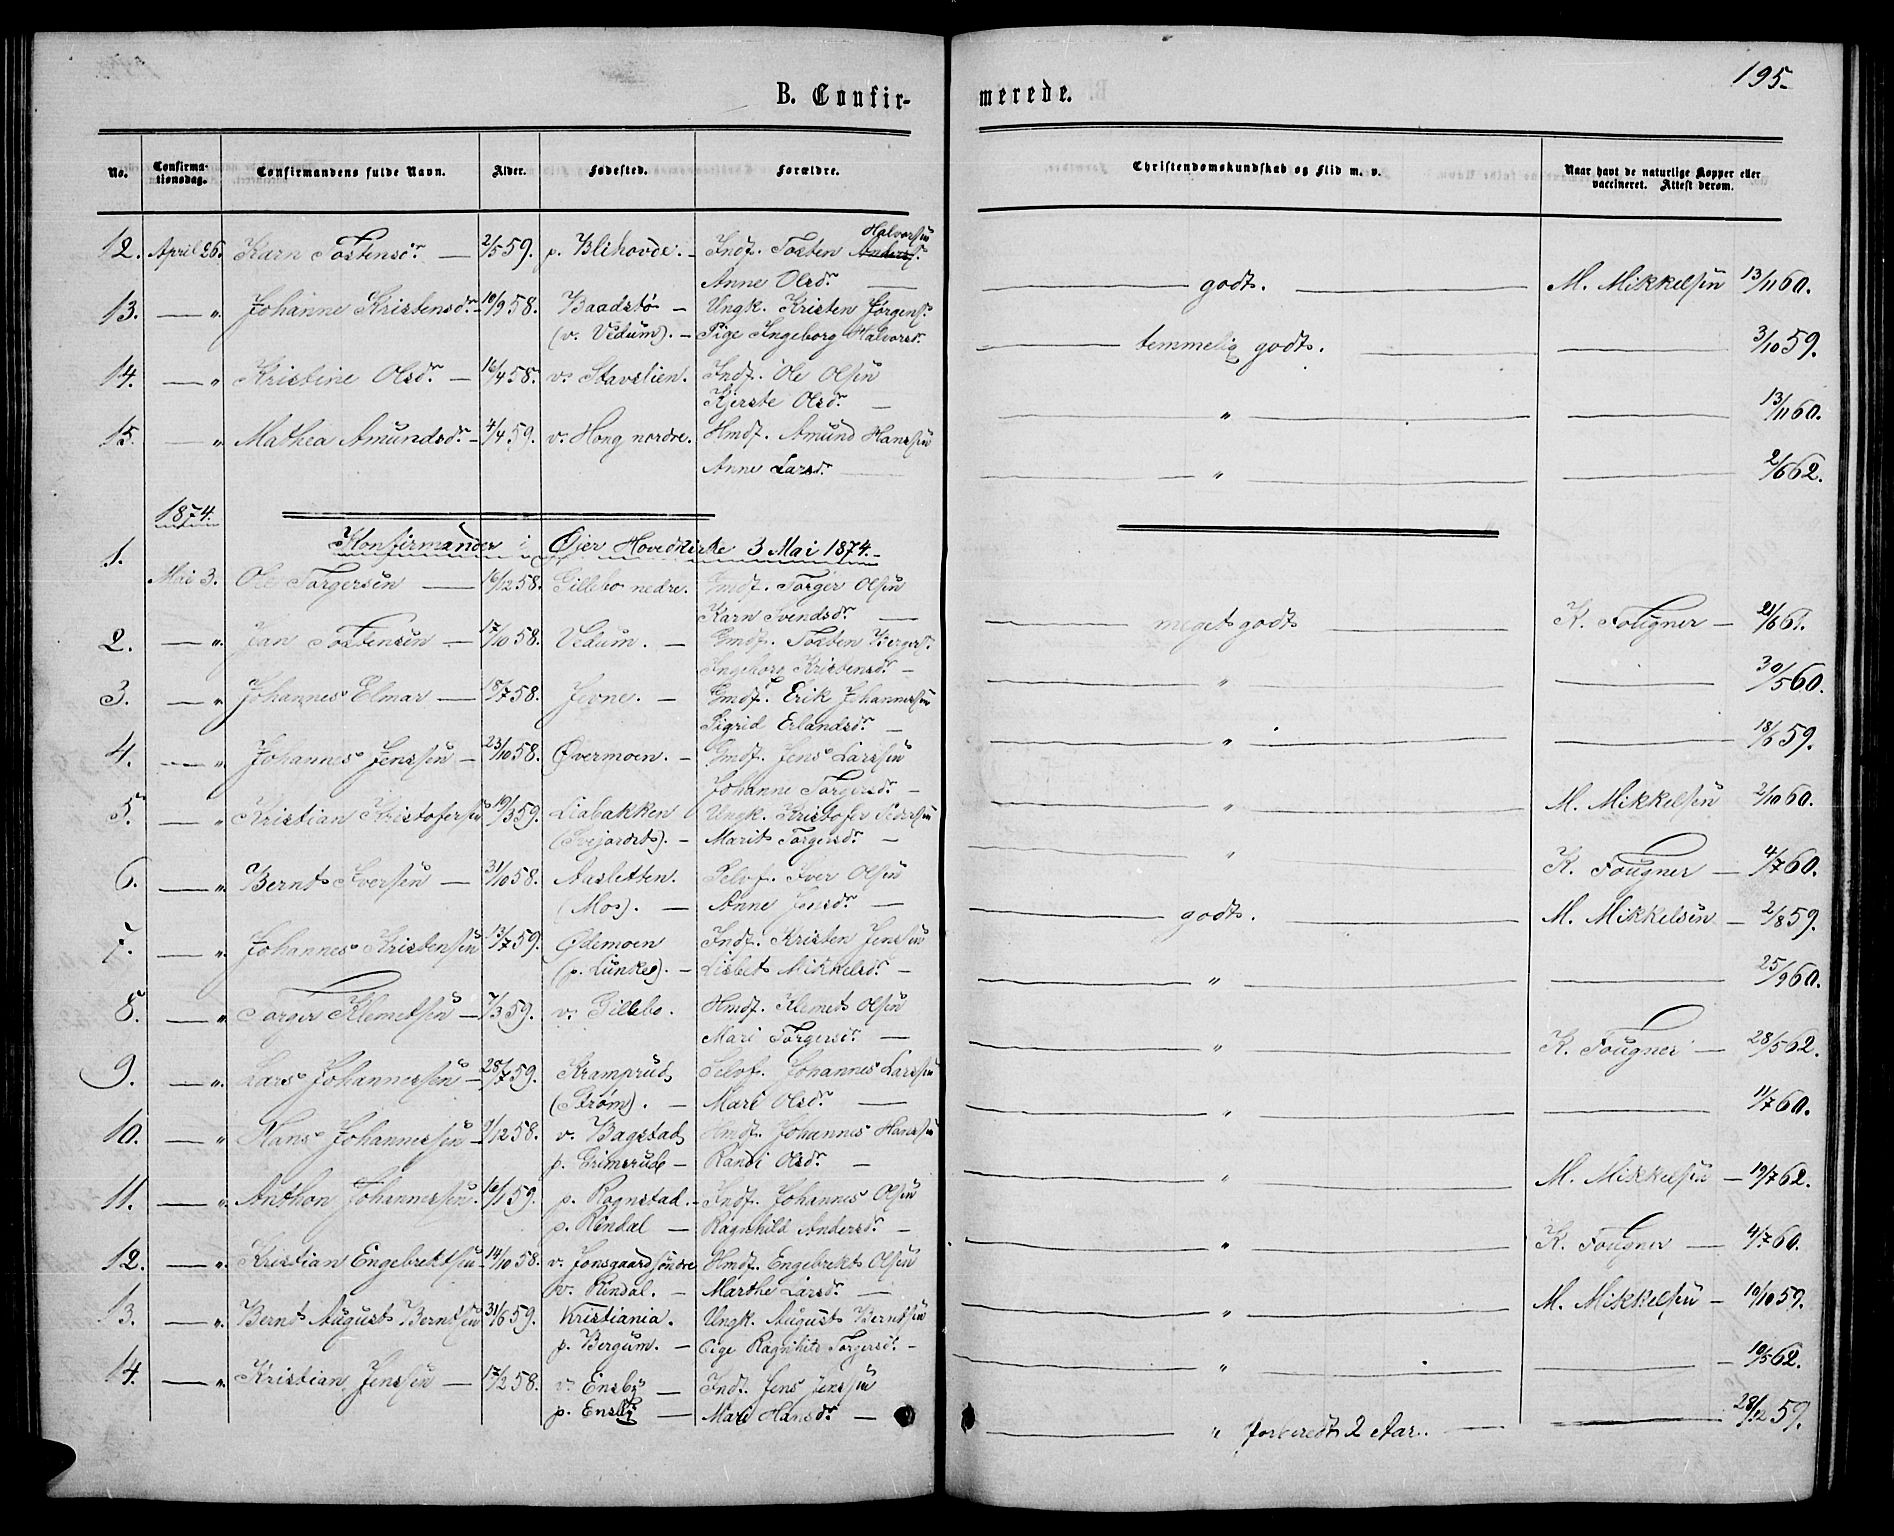 195.
B. Confirmerede.
No. Confirmationsdag. Confirmandens fulde Navn. Alder. Fødested. Forældre. Christendomskundskab og Flid m. v. Naar havt de naturlige Kopper eller vaccineret. Attest derom.
Halvorsen
12. April 26. Karn Tostensdr. — 2/5 59. p. Blihovde. — Indf. Tosten Anders.
Anne Olsd. — godt. — M. Mikkelsen 13/11 60.
13. — " Johanne Kristensdr. 10/9 58. Baadstø — Ungk. Kristen Jørgens.
(v. Vedum). — Pige Ingeborg Halvorsd. — temmelig godt. — 3/10 59.
14. — " Kristine Olsdr. — 16/4 58. v. Stavslien. Indf. Ole Olsen
Kjerste Olsdr. — " — 13/11 60.
15. — " Mathea Amundsdr. — 4/4 59. v. Hong nordre. Hmdf. Amund Hanssen
Anne Larsdr. — " — 2/6 62.
1874.
Konfirmander i Øier Hovedkirke 3 Mai 1874.
1. Mai 3. Ole Torgersen — 16/12 58. Gillebo nedre. Gmdf. Torger Olsen
Karn Svendsdr. — meget godt — K. Fougner — 21/6 61.
2. — " Jan Tostensen — 17/10 58. Vedum. — Gmdf. Tosten Berger
Ingeborg Kristensdr. — " — 30/5 60.
3. — " Johannes Elmar — 8/7 58. Jevne. — Gmdf. Erik Johannessen
Sigrid Erlandsdr. — " — 18/6 59.
4. — " Johannes Jenssen — 23/10 58. Øvermoen. — Gmdf. Jens Larssen
Johanne Torgersdr. — " — M. Mikkelsen 2/10 60.
5. — " Kristian Kristofersen 19/3 59. Liabakken Ungk. Kristofer Pedersen
Marit Torgersdr. — " — K. Fougner — 4/7 60.
6. — " Bernt Iversen — 31/10 58. Aasletten. Selvf. Iver Olsen
(Mos). — Anne Jensdr. — godt. — M. Mikkelsen — 2/8 59.
7. — " Johannes Kristensen 13/7 59. Ødemoen Indf. Kristen Jenssen
(p. Lunke). — Lisbet Mikkelsdr. — " — 25/9 60.
8. — " Torger Klemetsen — 7/3 59. v. Gillebo. Hmdf. Klemet Olsen
Mari Torgersdr. — " — K. Fougner — 28/5 62.
9. — " Lars Johannessen — 28/7 59. Kramprud Selvf. Johannes Larssen
(Strøm). — Mari Olsdr. — " — 11/7 60.
10. — " Hans Johannessen — 2/12 58. v. Bagstad Hmdf. Johannes Hanssen
p. Grimsrud — Randi Olsdr. — " — M. Mikkelsen — 19/7 62.
11. — " Anthon Johannessen. 16/1 59. p. Rognstad. — Indf. Johannes Olsen
p. Rindal — Ragnhild Andersdr. — " — K. Fougner — 4/7 60.
12. — " Kristian Engebrektsen 14/10 58. v. Jonsgaard søndre Hmdf. Engebrekt Olsen
v. Rindal. — Marthe Larsdr. — " — M. Mikkelsen — 10/10 59.
13. — " Bernt August Berntsen 31/6 59. Kristiania. Ungk. August Berntsen
p. Bergum. — Pige Ragnhild Torgersdr. — " — 10/5 62.
14. — " Kristian Jenssen — 17/2 58. v. Ensby — Indf. Jens Jenssen
p. Ensby — Mari Hansdr. — " forberedt 2 Aar. — 28/12 59.